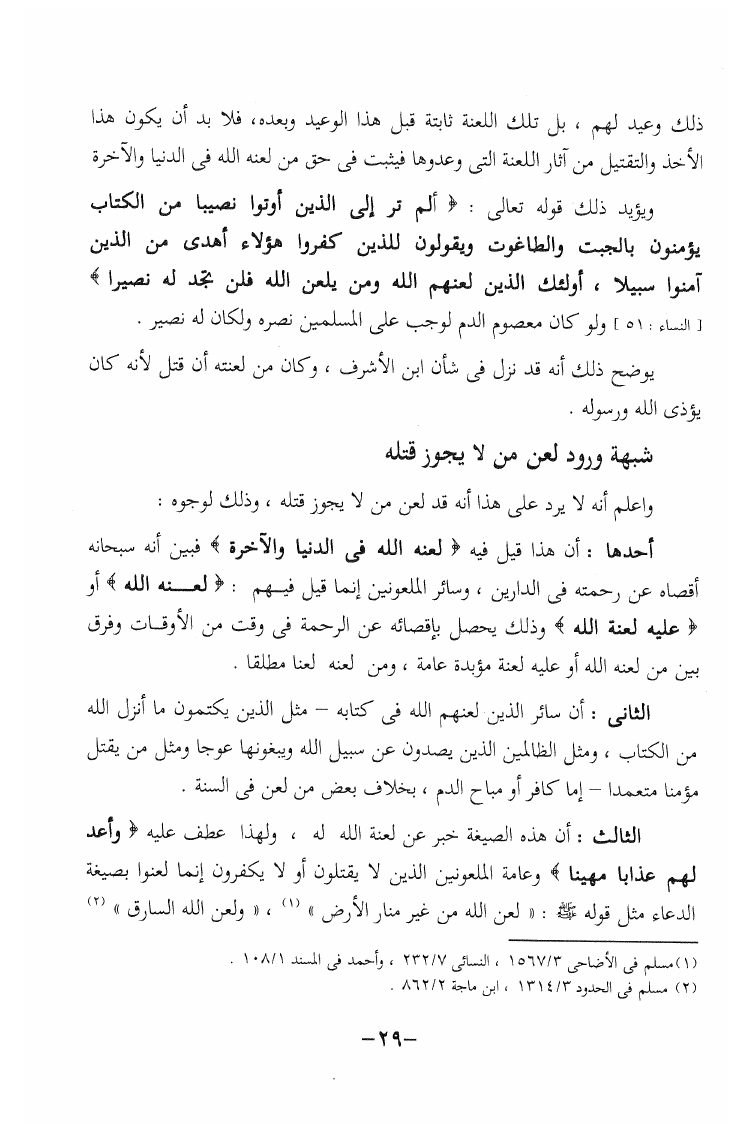 ذلك وعيد لهم ، بل تلك اللعنة ثابتة قبل هذا الوعيد وبعده، فلا بد أن يكون هذا
الأخذ والتقتيل من آثار اللعنة التى وعدوها فيثبت فى حق من لعنه الله فى الدنيا والآخرة
ويؤيد ذلك قوله تعالى : ﴿ ألم تر إلى الذين أوتوا نصيبا من الكتاب
يؤمنون بالجبت والطاغوت ويقولون للذين كفروا هؤلاء أهدى من الذين
آمنوا سبيلا ، أولئك الذين لعنهم الله ومن يلعن الله فلن تجد له نصيرا ﴾
[ النساء : ٥١ ] ولو كان معصوم الدم لوجب على المسلمين نصره ولكان له نصير .
يوضح ذلك أنه قد نزل فى شأن ابن الأشرف ، وكان من لعنته أن قتل لأنه كان
يؤذى الله ورسوله .
شبهة ورود لعن من لا يجوز قتله
واعلم أنه لا يرد على هذا أنه قد لعن من لا يجوز قتله ، وذلك لوجوه :
أحدها : أن هذا قيل فيه ﴿ لعنه الله فى الدنيا والآخرة ﴾ فبين أنه سبحانه
أقصاه عن رحمته فى الدارين ، وسائر الملعونين إنما قيل فيـهم : ﴿ لعـــنه الله ﴾ أو
﴿ عليه لعنة الله ﴾ وذلك يحصل بإقصائه عن الرحمة فى وقت من الأوقـات وفرق
بين من لعنه الله أو عليه لعنة مؤبدة عامة ، ومن لعنه لعنا مطلقا .
الثانى : أن سائر الذين لعنهم الله فى كتابه – مثل الذين يكتمون ما أنزل الله
من الكتاب ، ومثل الظالمين الذين يصدون عن سبيل الله ويبغونها عوجا ومثل من يقتل
مؤمنا متعمدا – إما كافر أو مباح الدم ، بخلاف بعض من لعن فى السنة .
الثالث : أن هذه الصيغة خبر عن لعنة الله له ، ولهذا عطف عليه ﴿ وأعد
لهم عذابا مهينا ﴾ وعامة الملعونين الذين لا يقتلون أو لا يكفرون إنما لعنوا بصيغة
الدعاء مثل قوله ﷺ : « لعن الله من غير منار الأرض » (١) ، « ولعن الله السارق » (٢)
(١)مسلم فى الأضاحى ١٥٦٧/٣ ، النسائى ٢٣٢/٧ ، وأحمد فى المسند ١٠٨/١ .
(٢) مسلم فى الحدود ١٣١٤/٣ ، ابن ماجة ٨٦٢/٢ .
–٢٩–